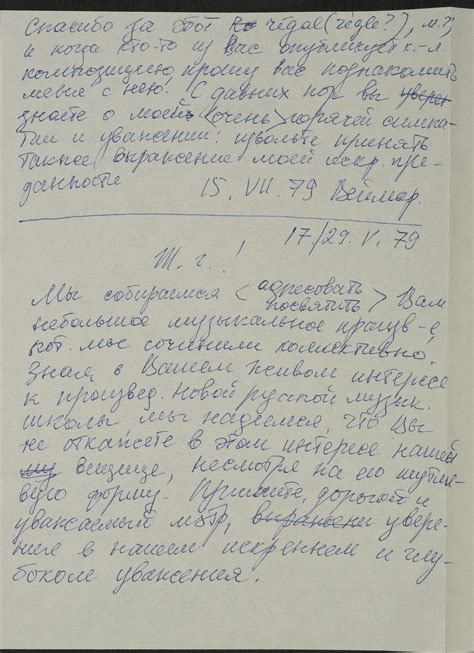 Спасибо за этот régal (règle?), м.г.,
и когда кто-то из Вас опубликует к.-л.
композицию, прошу Вас познакомить
меня с нею. С давних пор вы
знаете о моей <очень> горячей симпа-
тии и уважении: извольте принять
также выражение моей искр. пре-
данности
15. VII. 79 Веймар.
17/29. V. 79
М. г. !
Мы собираемся < адресовать
посвятить > Вам
небольшое музыкальное произв-е,
кот. мы сочинили коллективно.
Зная о Вашем живом интересе
к произвед. новой русской музык.
школы мы надеемся, что Вы
не откажете в этом интересе нашей
вещице, несмотря на её шутли-
вую форму. Примите, дорогой и
уважаемый мэтр, выражени увере-
ние в нашем искреннем и глу-
боком уважении.